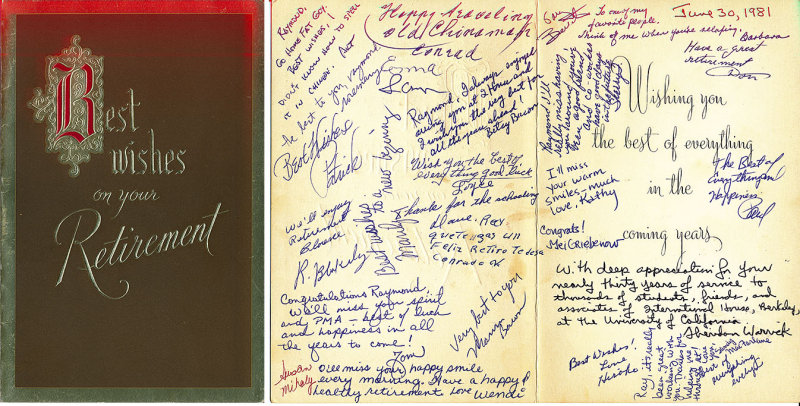 Best
wishes
on your
Retirement
RAYMOND,
GO HOME FAT GUY.
BEST WISHES, I
DIDN'T KNOW HOW TO SPELL
IT IN CHINESE.
The best to you, Raymond,
Rosemary
Best Wishes
Chuck
We'll enjoy
Retirement
R. Blakely
Congratulations Raymond,
We'll miss your spirit
and PMA - best of luck
and happiness in all
the years to come!
Tom
Susan
Mihaly
I'll miss your happy smile
every morning. Have a happy &
healthy retirement Love Wendi
Happy traveling
old Chinaman
Conrad
Raymond, I always enjoyed
seeing you at I House and
I wish you the very best for
all the years ahead!
Betsy Bacon
Wish you the best of
everything good luck
Joyce
Best wishes
to a new beginning
Thanks for the schooling
Dave
Que tengas un
Feliz Retiro Te desea
Conrado
Very best to you
Bacon
To one of my
favorite people.
Think of me when you're sleeping.
Barbara
June 30, 1981
Have a great
retirement
Don
Wishing you
the best of everything
in the
coming years
I'll miss
your warm
smiles - much
love, Kathy
The Best of
Everything and
Happiness
Paul
Congrats!
Mei Griebenow
With deep appreciation for your
nearly thirty years of service to
thousands of students, friends, and
associates of International House, Berkeley,
at the University of California
Sheridan Warrick
Best Wishes!
Love
Hisako
Ray, it's really
been great
working with
you